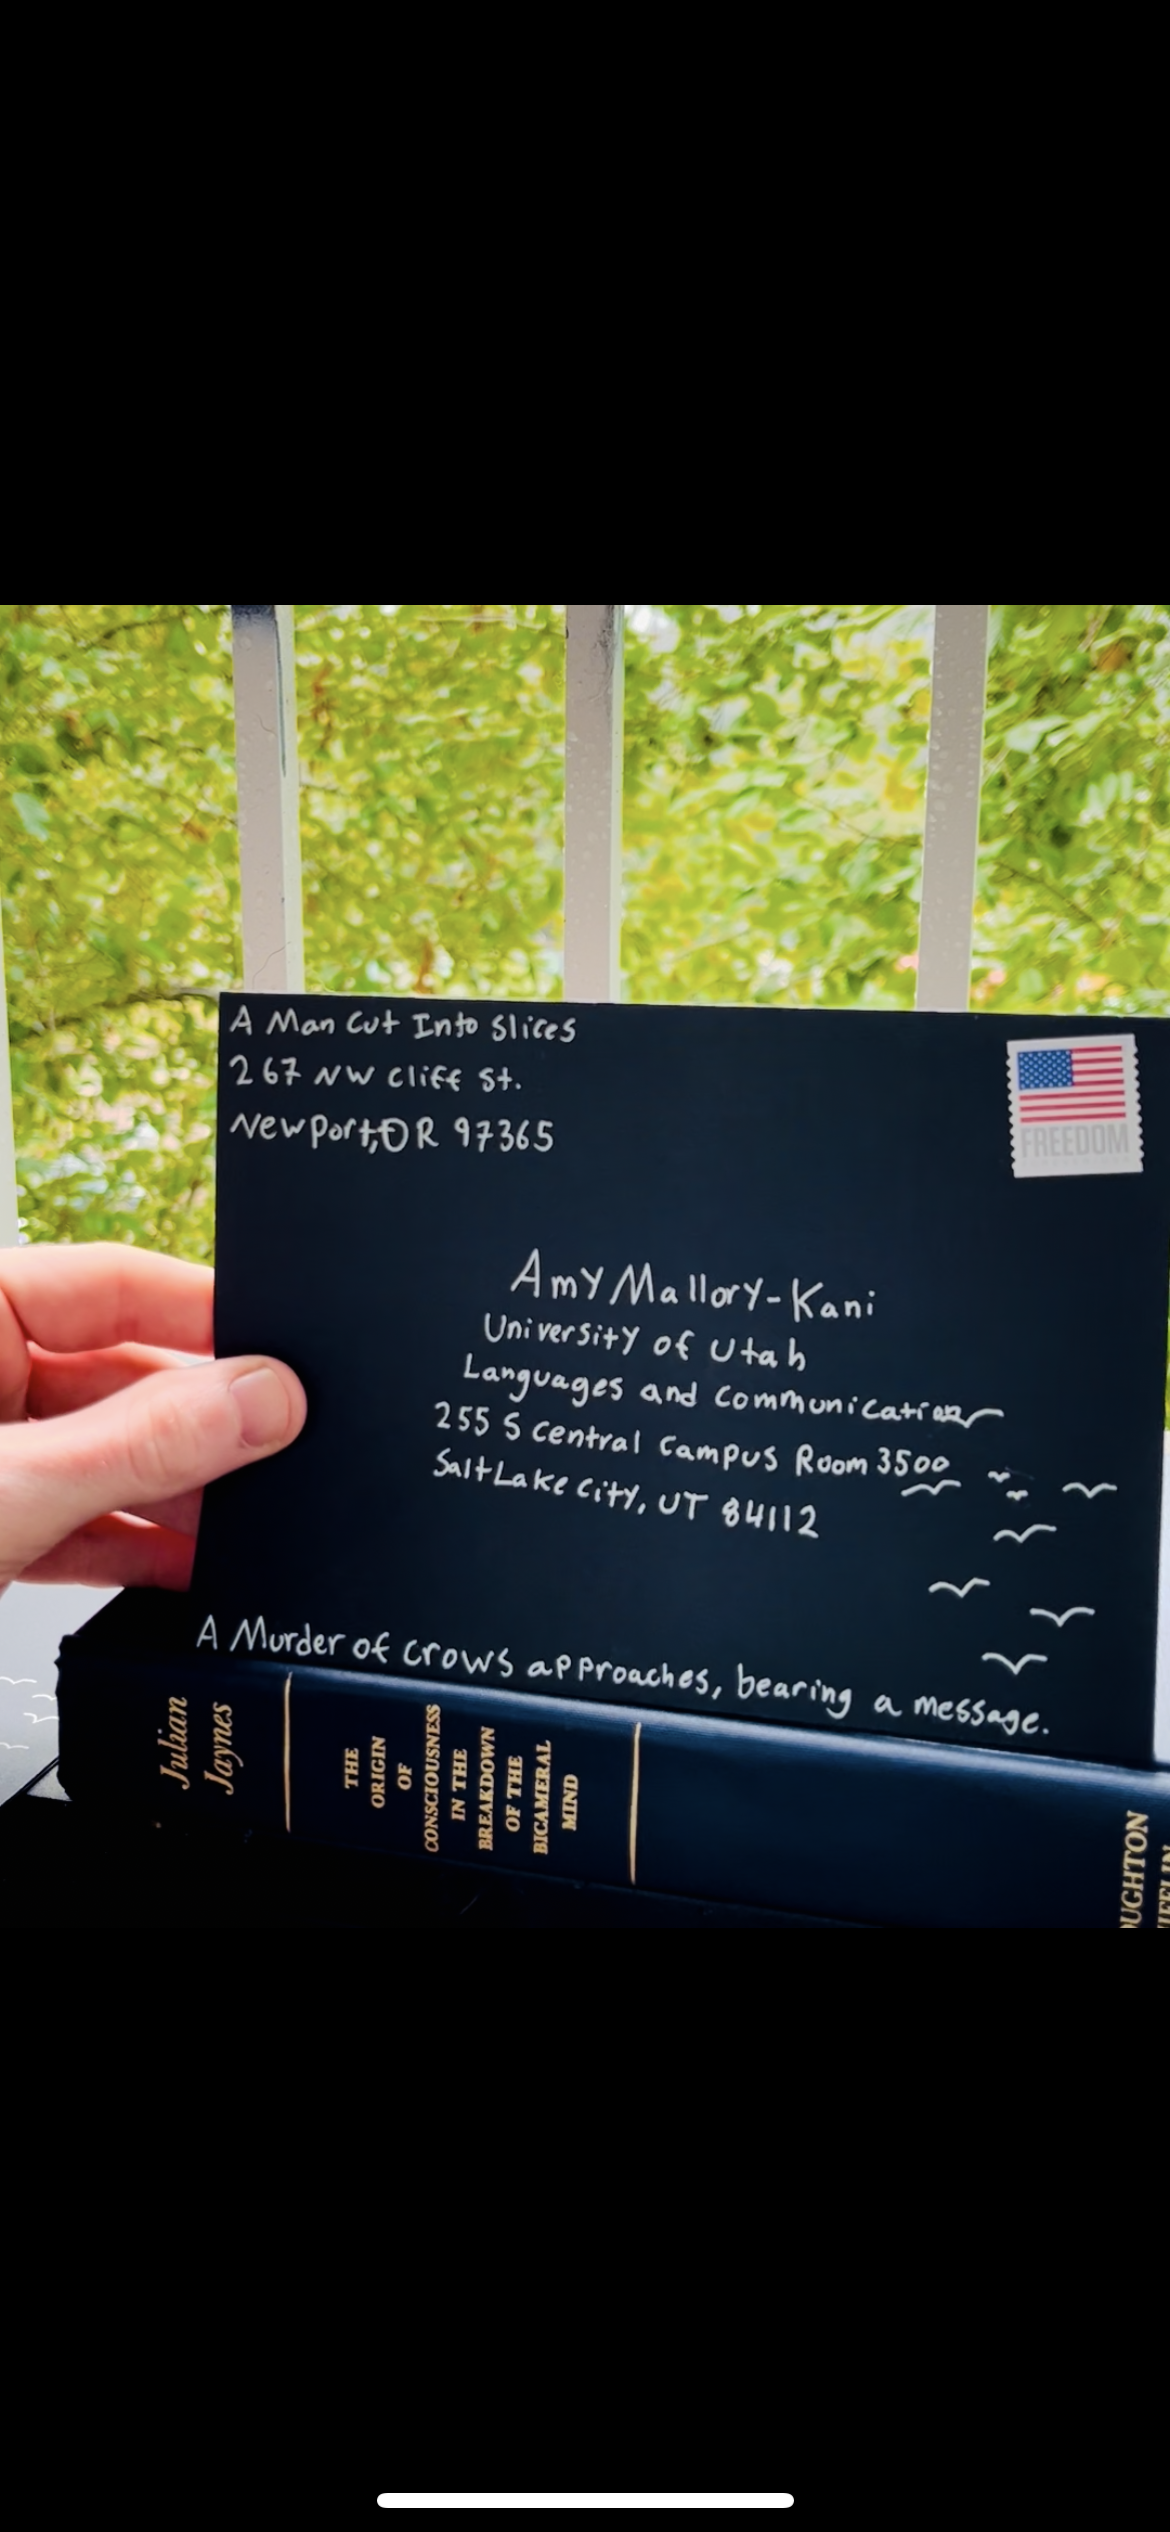 A Man Cut Into Slices
267 NW Cliff St.
Newport, OR 97365
FREEDOM
Amy Mallory-Kani
University of Utah
Languages and Communication
255 S Central Campus Room 3500
Salt Lake City, UT 84112
A Murder of Crows approaches, bearing a message.
Julian
Jaynes
THE
ORIGIN
OF
CONSCIOUSNESS
IN THE
BREAKDOWN
OF THE
BICAMERAL
MIND
OUGHTON
IFFLIN